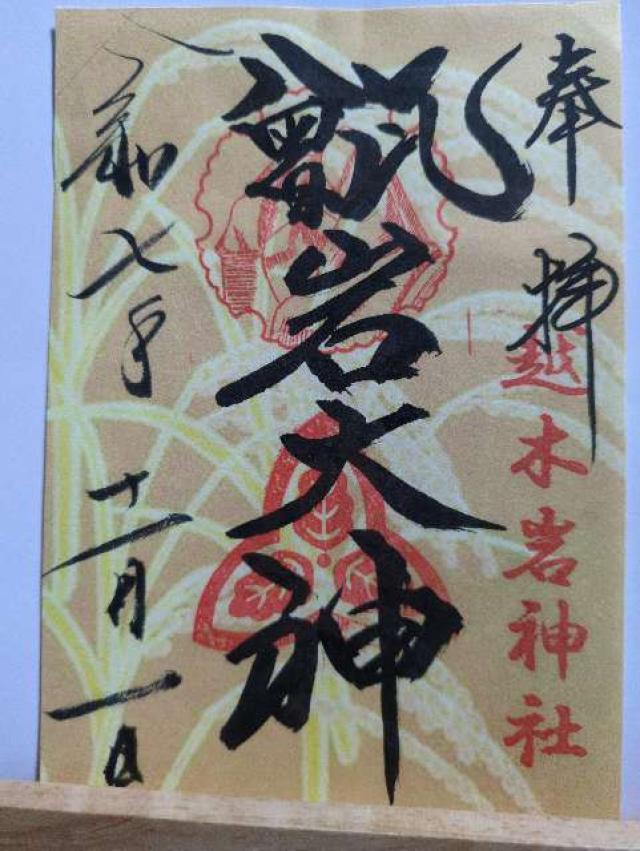 奉拝
越木岩神社
甑岩大神
令和七年十一月一日